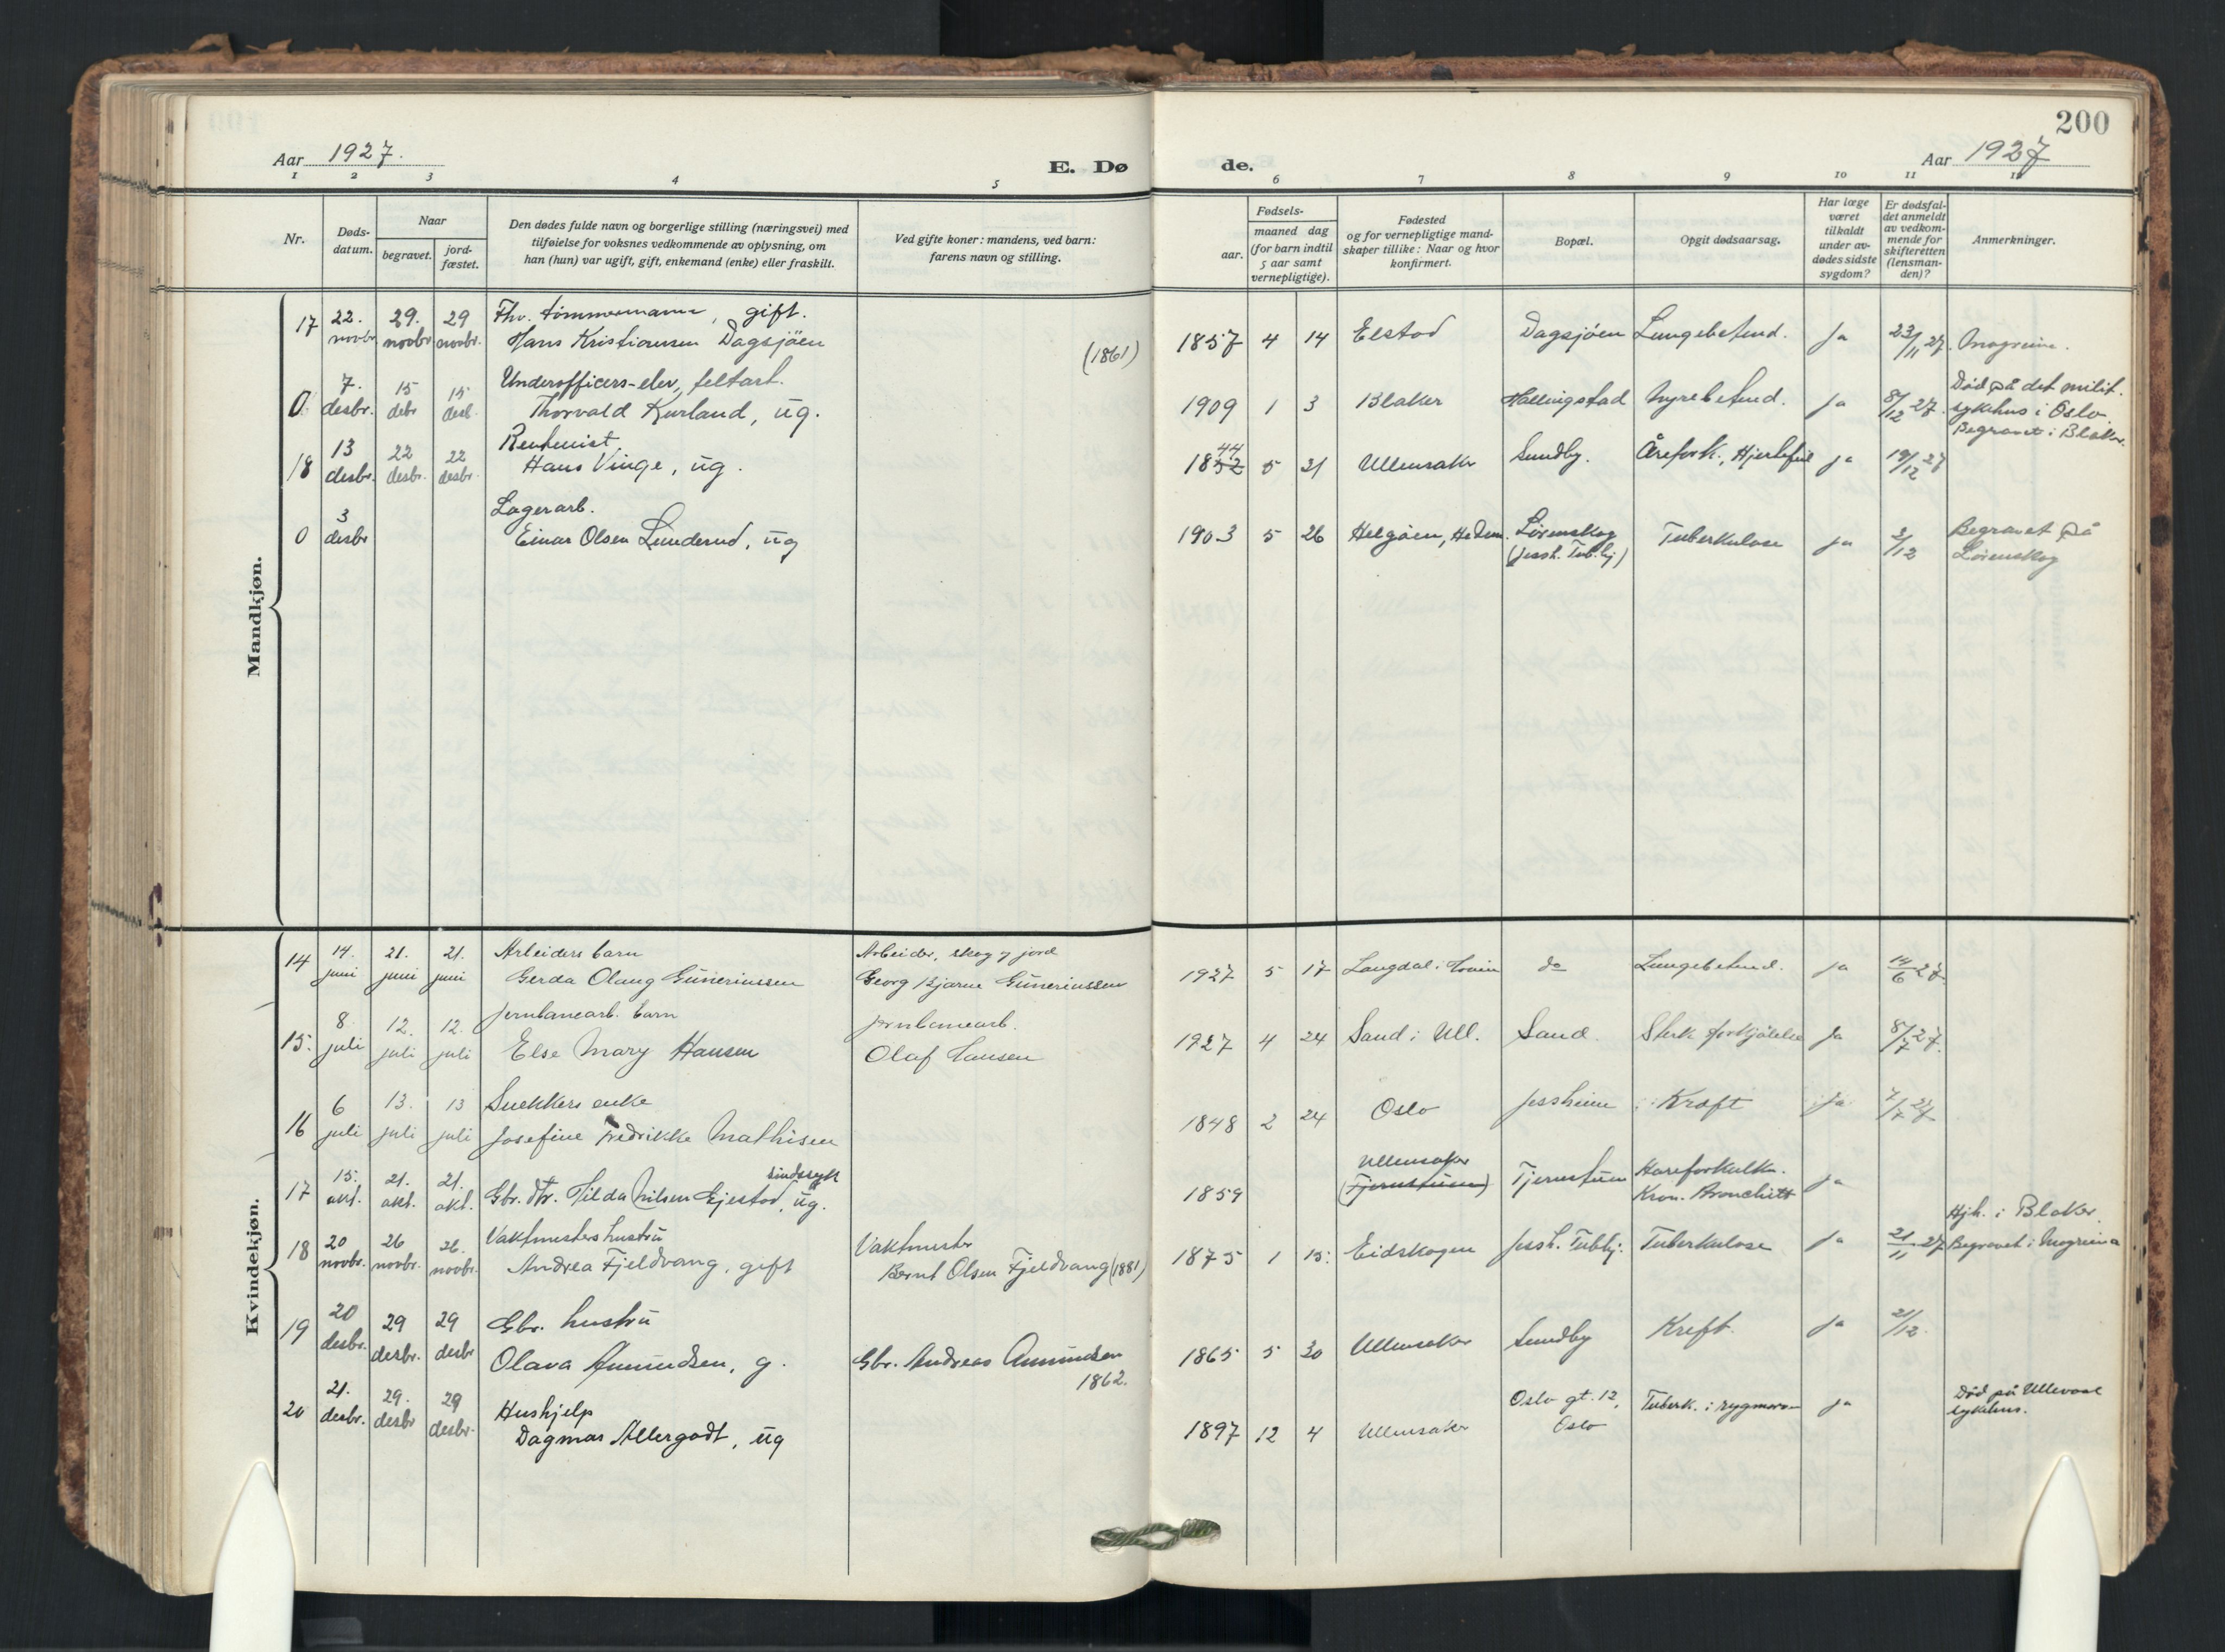 200
Aar 1927.
E. Dø
de.
Aar 1927
1 2 3 4 5 6 7 8 9 10 11 12
Nr.
Døds-
datum.
Naar
begravet.
jord-
fæstet.
Den dødes fulde navn og borgerlige stilling (næringsvei) med
tilføielse for voksnes vedkommende av oplysning, om
han (hun) var ugift, gift, enkemand (enke) eller fraskilt.
Ved gifte koner: mandens, ved barn:
farens navn og stilling.
Fødsels-
aar.
maaned dag
(for barn indtil
5 aar samt
vernepligtige).
Fødested
og for vernepligtige mand-
skaper tillike: Naar og hvor
konfirmert.
Bopæl.
Opgit dødsaarsag.
Har læge
været
tilkaldt
under av-
dødes sidste
sygdom?
Er dødsfal-
det anmeldt
av vedkom-
mende for
skifteretten
(lensman-
den)?
Anmerkninger.
Mandkjøn.
17 22. novbr 29. novbr 29 novbr. Fhv. tømmermann, gift.
Hans Kristiansen Dagsjöen (1861) 1857 4 14 Elstad Dagsjöen Lungebetend. Ja 23/11 27. Mogreina.
0 7. desbr. 15 desbr 15 desb. Underofficers-elev, feltart.
Thorvald Kurland, ug. 1909 1 3 Blaker Hallingstad Nyrebetend. Ja 8/12 27. Död på det milit.
sykehus i Oslo.
Begravet i Blaker.
18 13 desbr. 22 desbr. 22 desbr. Rentenist
Hans Vinge, ug. 1852 44 5 21 Ullensaker Sundby. Årefork., Hjertefeil ja 19/12 27
0 3 desbr Lagerarb.
Einar Olsen Lunderud, ug 1903 5 26 Helgøen, Hedm. Lörenskog
(Jessh. Tub.hj) Tuberkulose ja 2/12 Begravet på
Lörenskog
Kvindekjøn.
14 14. juni 21. juni 21. juni Arbeiders barn
Gerda Olaug Gunerius­sen Arbeider, skog og jord
Georg Bjarne Guneriussen 1927 5 17 Langdal i Hovin do Lungebetend. ja 14/6 27.
15. 8. juli 12. juli 12. juli Jernbanearb. barn
Else Mary Hansen Jernbanearb.
Olaf Hansen 1927 4 24 Sand i Ull. Sand. Sterk forkjölelse Ja 8/7 27.
16 6 juli 13. juli 13 juli Snekkers enke
Josefine Fredrikke Mathisen 1848 2 24 Oslo Jessheim Kræft ja 7/7 27
17 15. okt. 21. okt. 21. okt. Gbr. dtr. Hilda Nilsen Gjestad, ug. sindssyk 1859 Ullensaker
(Tjernstuen) Tjernstuen Aareforkalkn.
Kron. Bronchitt ja
18 20 novbr. 26 novbr. 26. novbr. Vaktmesters hustru
Andrea Fjeldvang, gift Vaktmester
Bernt Olsen Fjeldvang (1881) 1875 1 15. Eidskogen Jessh. Tubhj. Tuberkulose ja 21/11 27 Hjh. i Blaker.
Begravet i Mogreina
19 20 desbr. 29 desbr. 29 desbr Gbr. hustru
Olava Amundsen, g. Gbr. Andreas Amundsen
1862. 1865 5 30 Ullensaker Sundby Kreft. ja 21/12
20 21. desbr. 29. desbr 29 desbr. Hushjelp
Dagmar Allergodt, ug 1897 12 4 Ullensaker Oslo gt. 12,
Oslo Tuberk. i rygmarv ja Död på Ullevaal
sykehus.